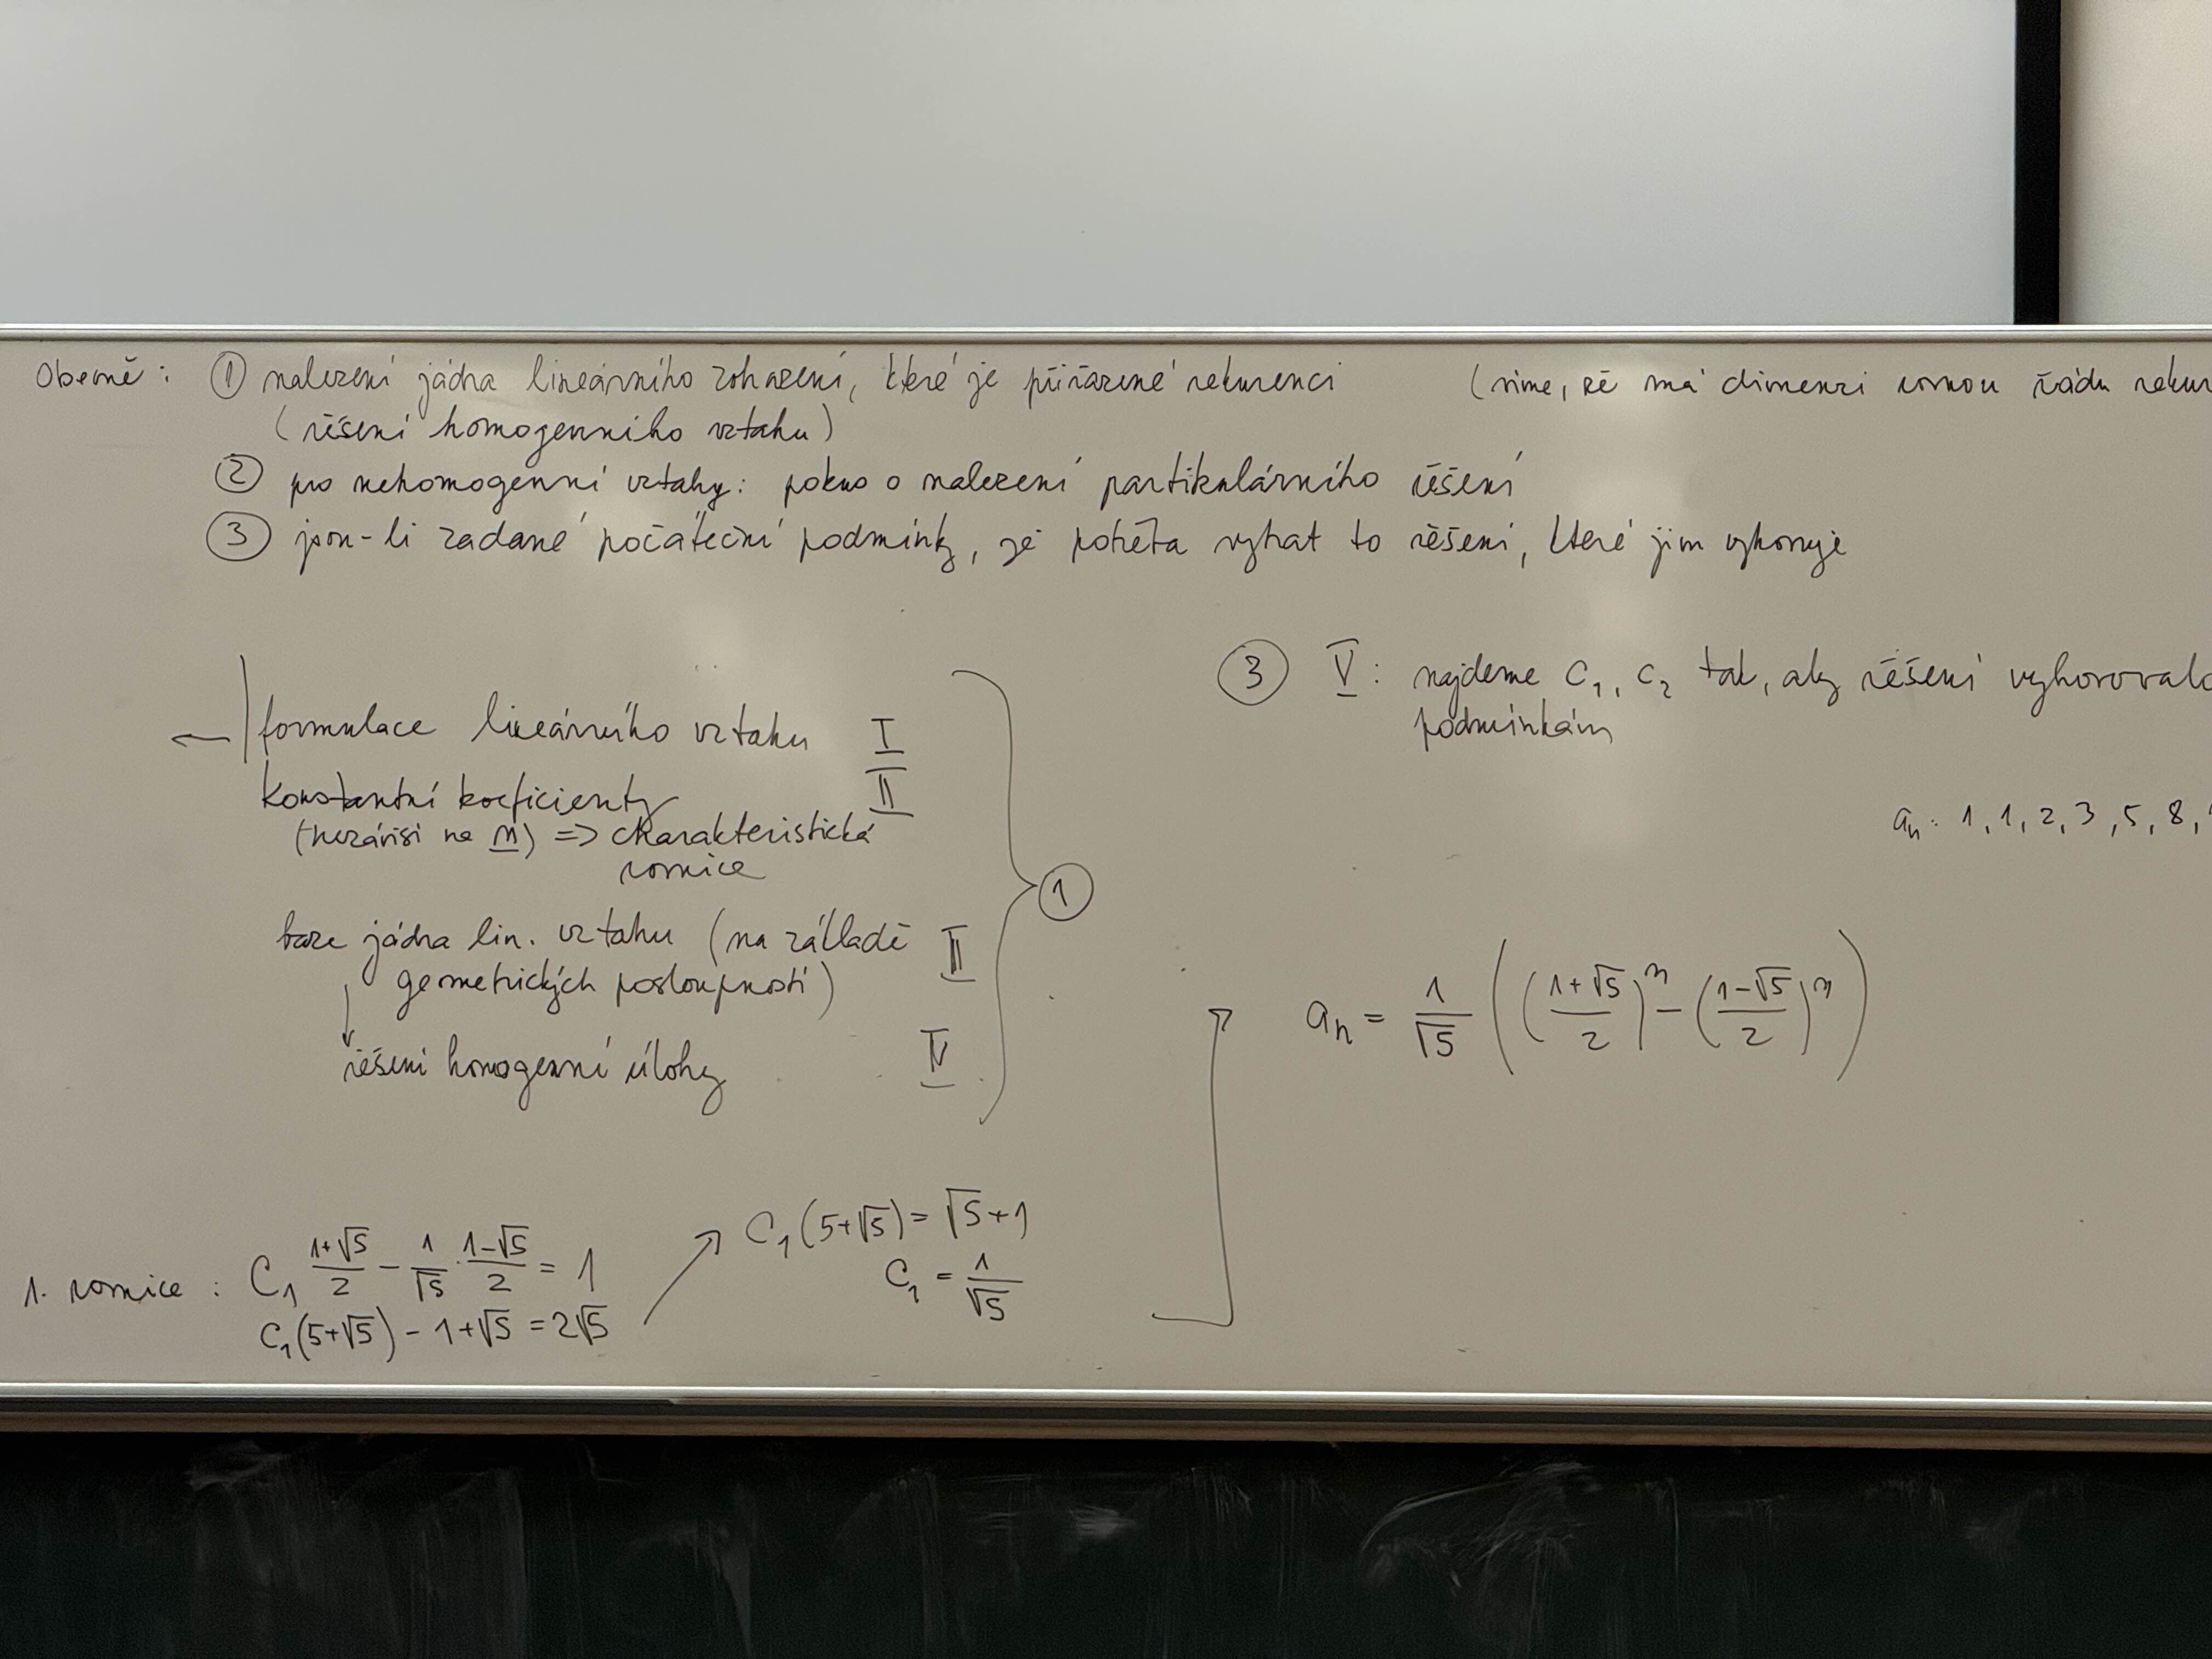 Obecně: ① nalezení jádra lineárního zobrazení, které je přiřazené rekurenci (víme, že má dimenzi rovnou řádu rekur
(řešení homogenního vztahu)
② pro nehomogenní vztahy: pokus o nalezení partikulárního řešení
③ jsou-li zadané počáteční podmínky, je potřeba vybrat to řešení, které jim vyhovuje
← formulace lineárního vztahu I
konstantní koeficienty II
(nezávisí na n) => charakteristická
rovnice
báze jádra lin. vztahu (na základě III
geometrických posloupností)
↓
řešení homogenní úlohy IV
①
1. rovnice: C₁ (1+√5)/2 − 1/√5 · (1−√5)/2 = 1
C₁(5+√5) − 1+√5 = 2√5
↗ C₁(5+√5) = √5+1
C₁ = 1/√5
③ V: najdeme C₁, C₂ tak, aby řešení vyhovovalo
podmínkám
aₙ: 1, 1, 2, 3, 5, 8,
aₙ = 1/√5 (((1+√5)/2)ⁿ − ((1−√5)/2)ⁿ)